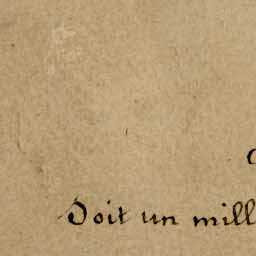 Doit un mill